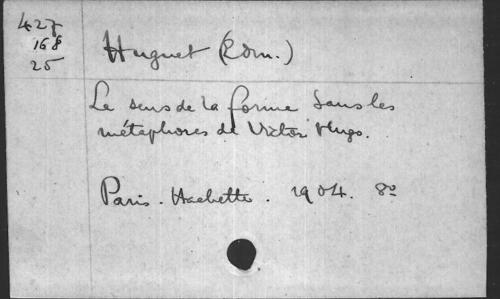 427
168
25
Huguet (Edm.)
Le sens de la forme dans les
métaphores de Victor Hugo.
Paris. Hachette. 1904. 8º